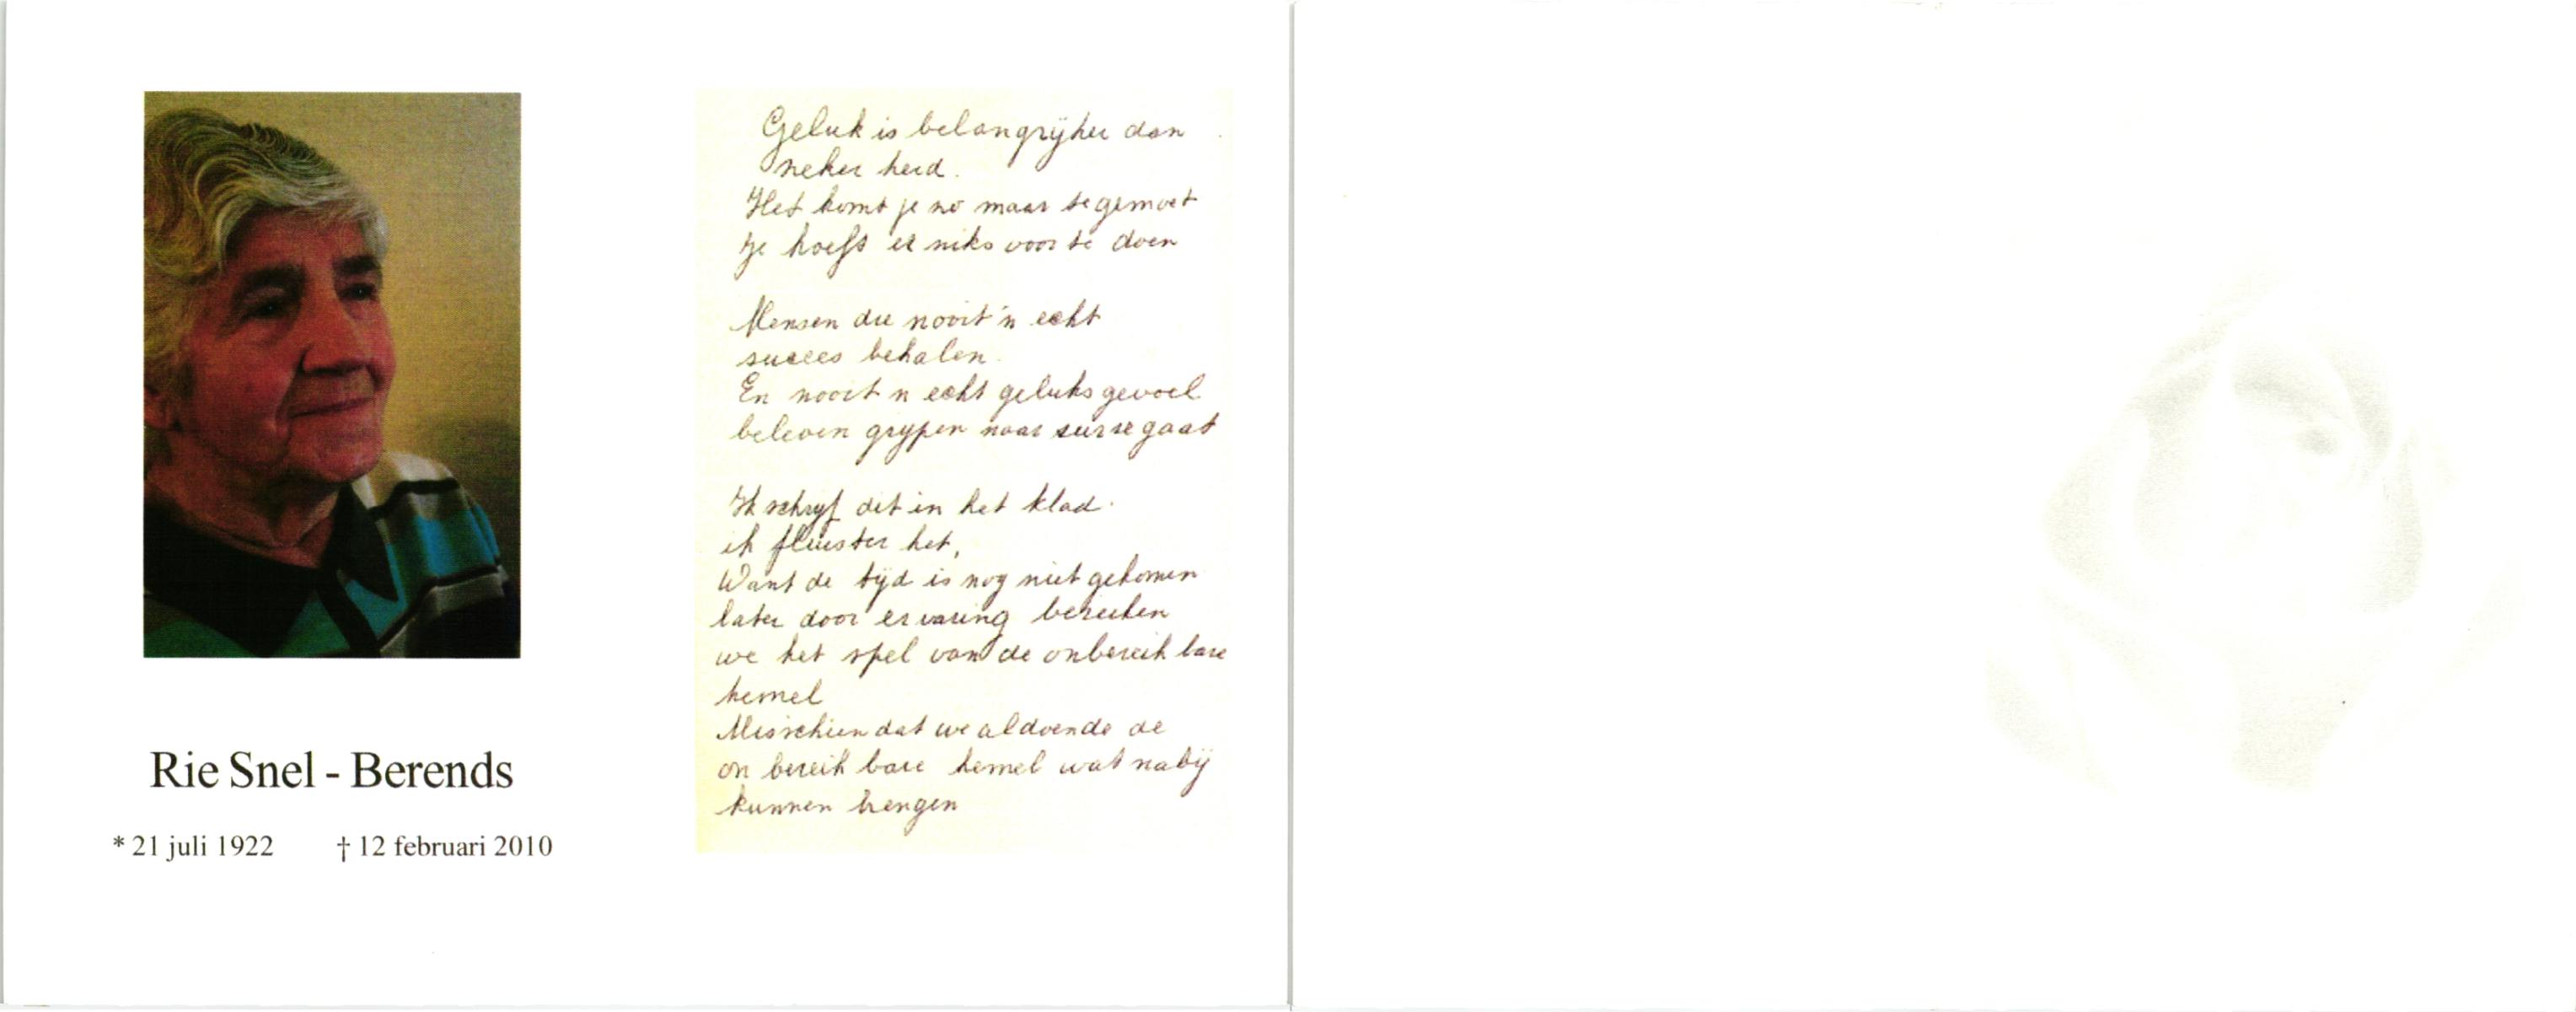 Rie Snel - Berends
* 21 juli 1922 † 12 februari 2010
Geluk is belangrijker dan
zekerheid.
Het komt je zo maar tegemoet
Je hoeft er niks voor te doen
Mensen die nooit 'n echt
succes behalen.
En nooit n echt geluksgevoel
beleven grijpen naar surregaat
Ik schrijf dit in het klad.
ik fluister het,
Want de tijd is nog niet gekomen
later door ervaring bereiken
we het spel van de onbereikbare
hemel
Misschien dat we aldoende de
on bereikbare hemel wat nabij
kunnen brengen